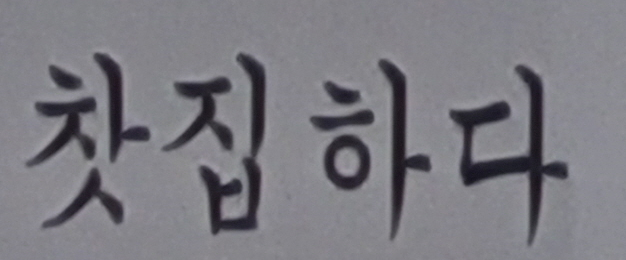 찻집하다